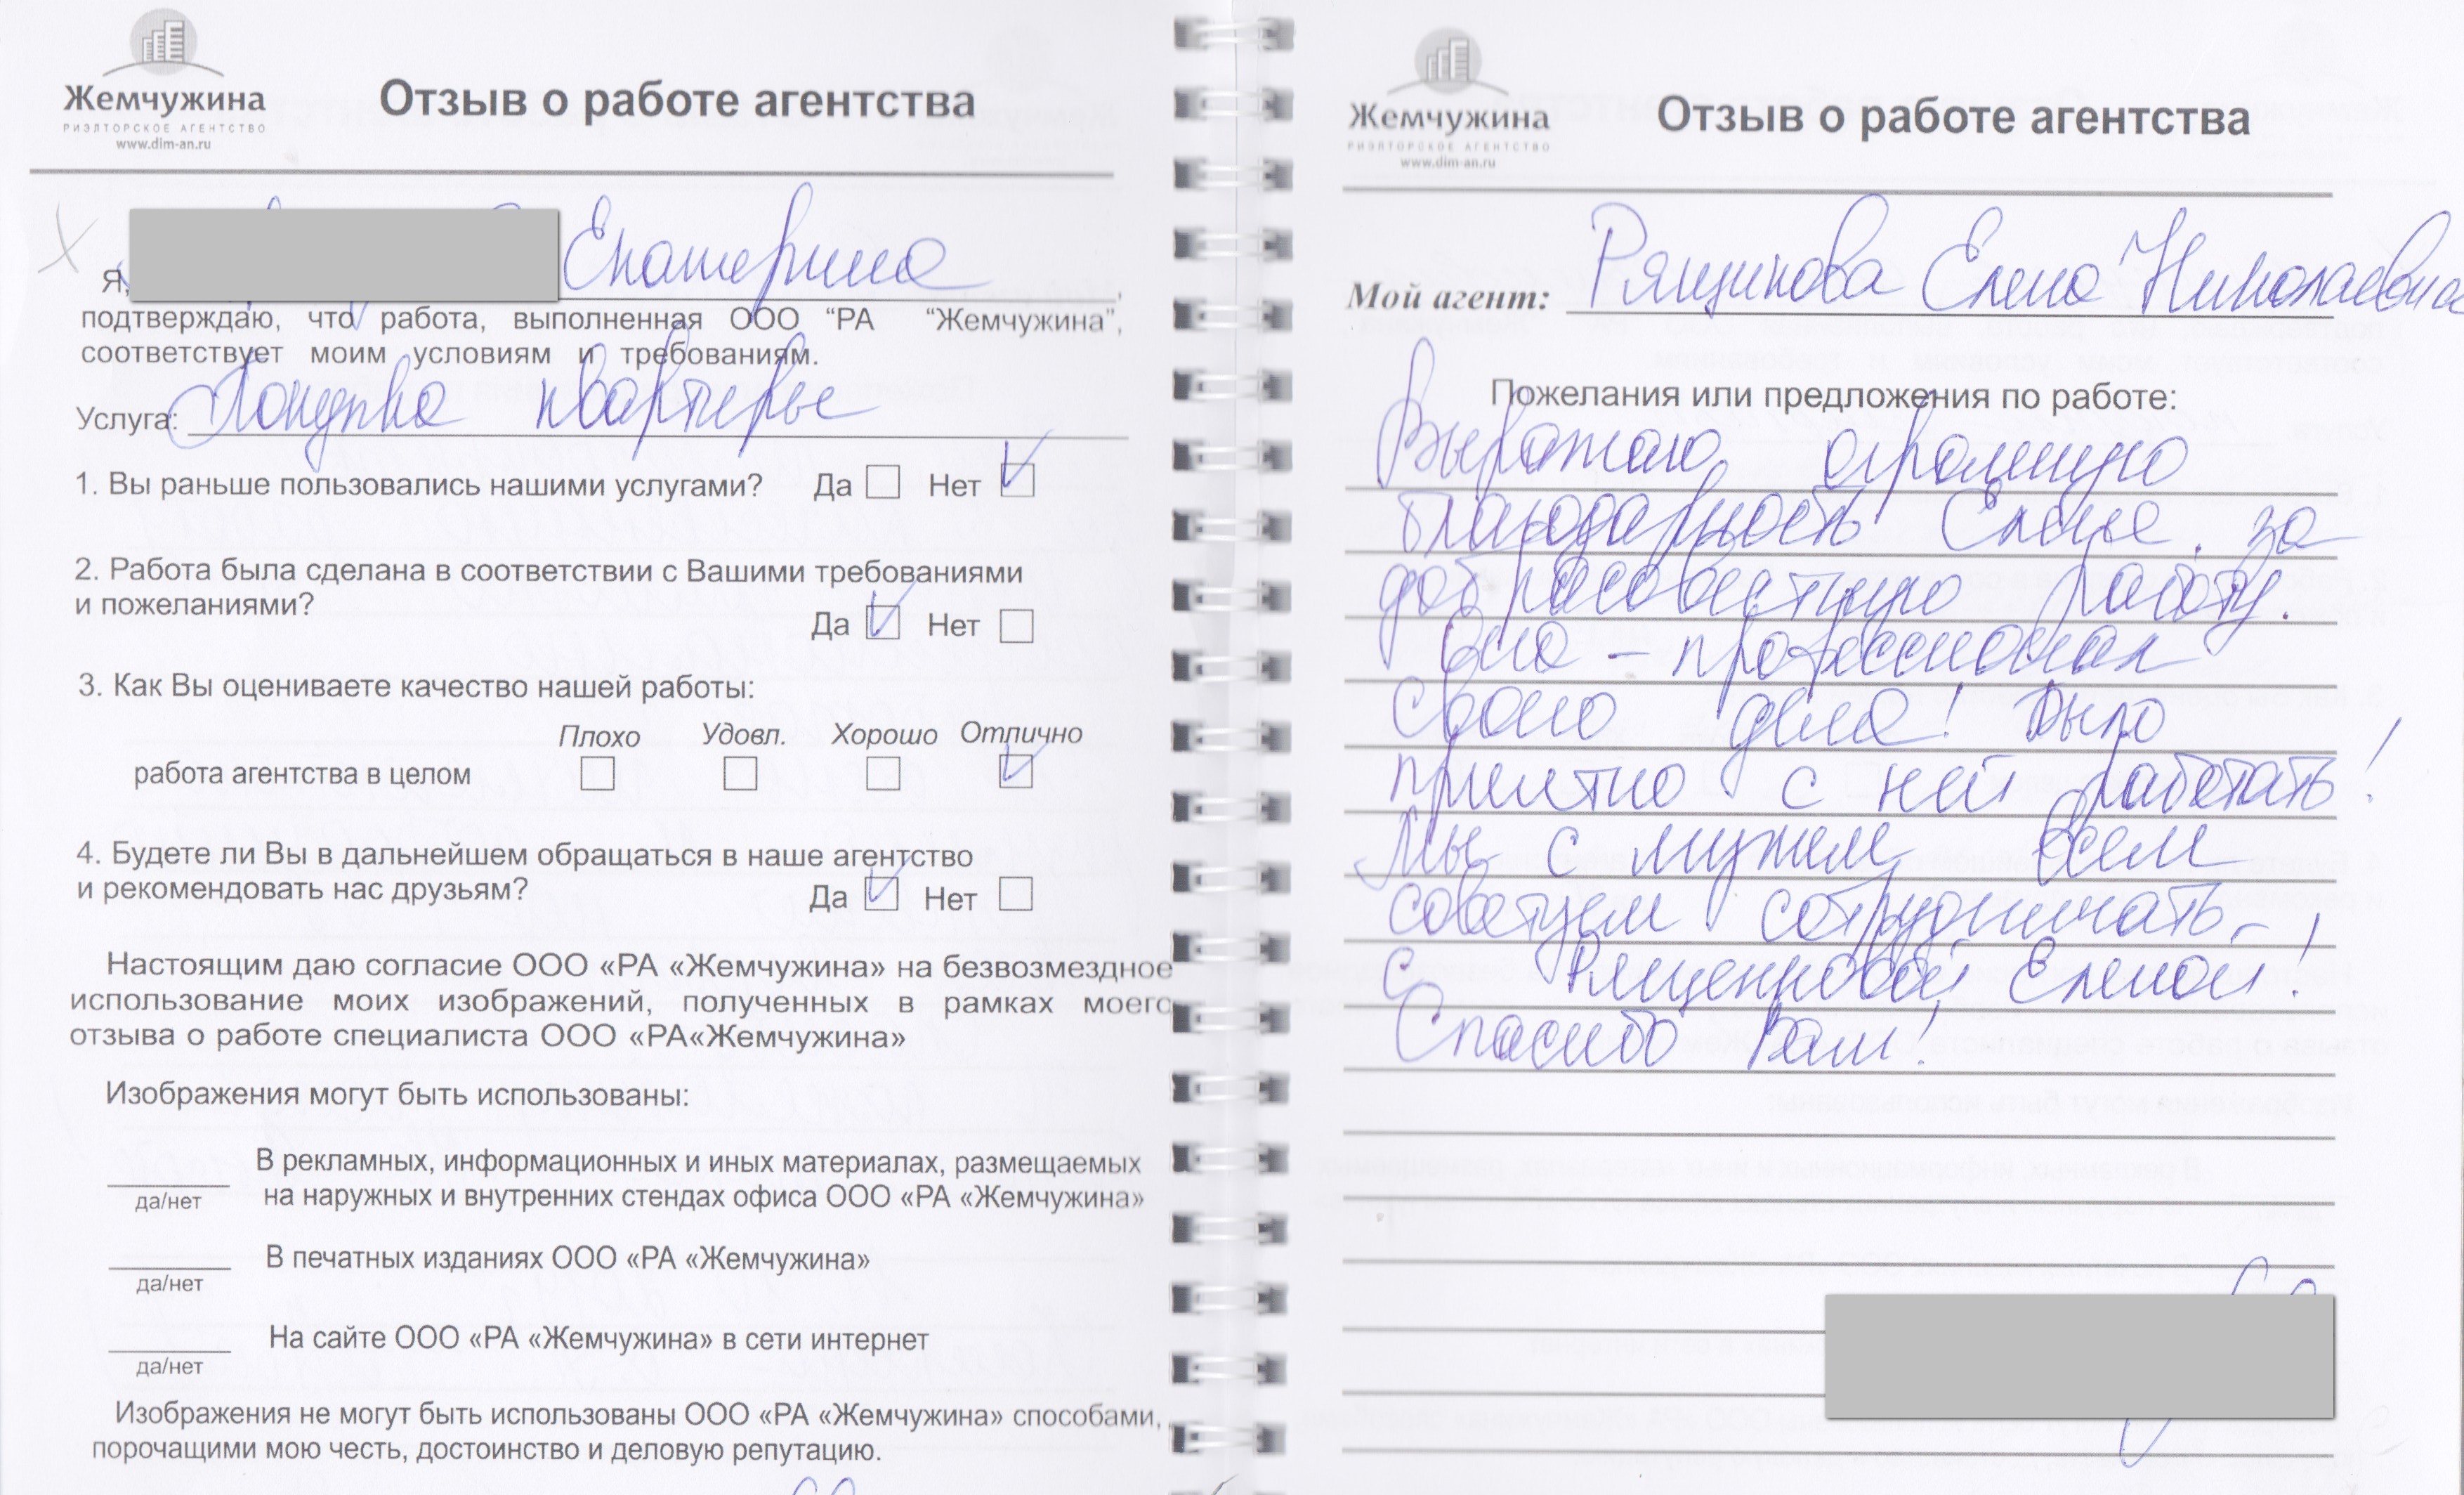 Жемчужина
РИЭЛТОРСКОЕ АГЕНТСТВО
www.dim-an.ru
Отзыв о работе агентства
Я, Екатерина,
подтверждаю, что работа, выполненная ООО “РА “Жемчужина”,
соответствует моим условиям и требованиям.
Услуга: Покупка квартиры
1. Вы раньше пользовались нашими услугами? Да Нет
2. Работа была сделана в соответствии с Вашими требованиями
и пожеланиями?
Да Нет
3. Как Вы оцениваете качество нашей работы:
Плохо Удовл. Хорошо Отлично
работа агентства в целом
4. Будете ли Вы в дальнейшем обращаться в наше агентство
и рекомендовать нас друзьям?
Да Нет
Настоящим даю согласие ООО «РА «Жемчужина» на безвозмездное
использование моих изображений, полученных в рамках моего
отзыва о работе специалиста ООО «РА«Жемчужина»
Изображения могут быть использованы:
В рекламных, информационных и иных материалах, размещаемых
да/нет на наружных и внутренних стендах офиса ООО «РА «Жемчужина»
В печатных изданиях ООО «РА «Жемчужина»
да/нет
На сайте ООО «РА «Жемчужина» в сети интернет
да/нет
Изображения не могут быть использованы ООО «РА «Жемчужина» способами,
порочащими мою честь, достоинство и деловую репутацию.
Жемчужина
РИЭЛТОРСКОЕ АГЕНТСТВО
www.dim-an.ru
Отзыв о работе агентства
Мой агент: Елена Николаевна
Пожелания или предложения по работе:
Выражаю огромную
благодарность Елене за
добросовестную работу.
Она – профессионал
своего дела! Было
приятно с ней работать!
Мы с мужем всем
советуем сотрудничать
с Еленой!
Спасибо Вам!